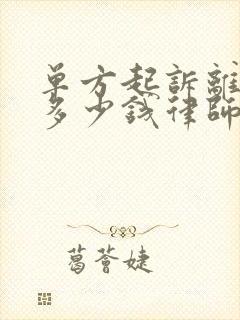 單方起訴離
多少錢律師
葛薈婕